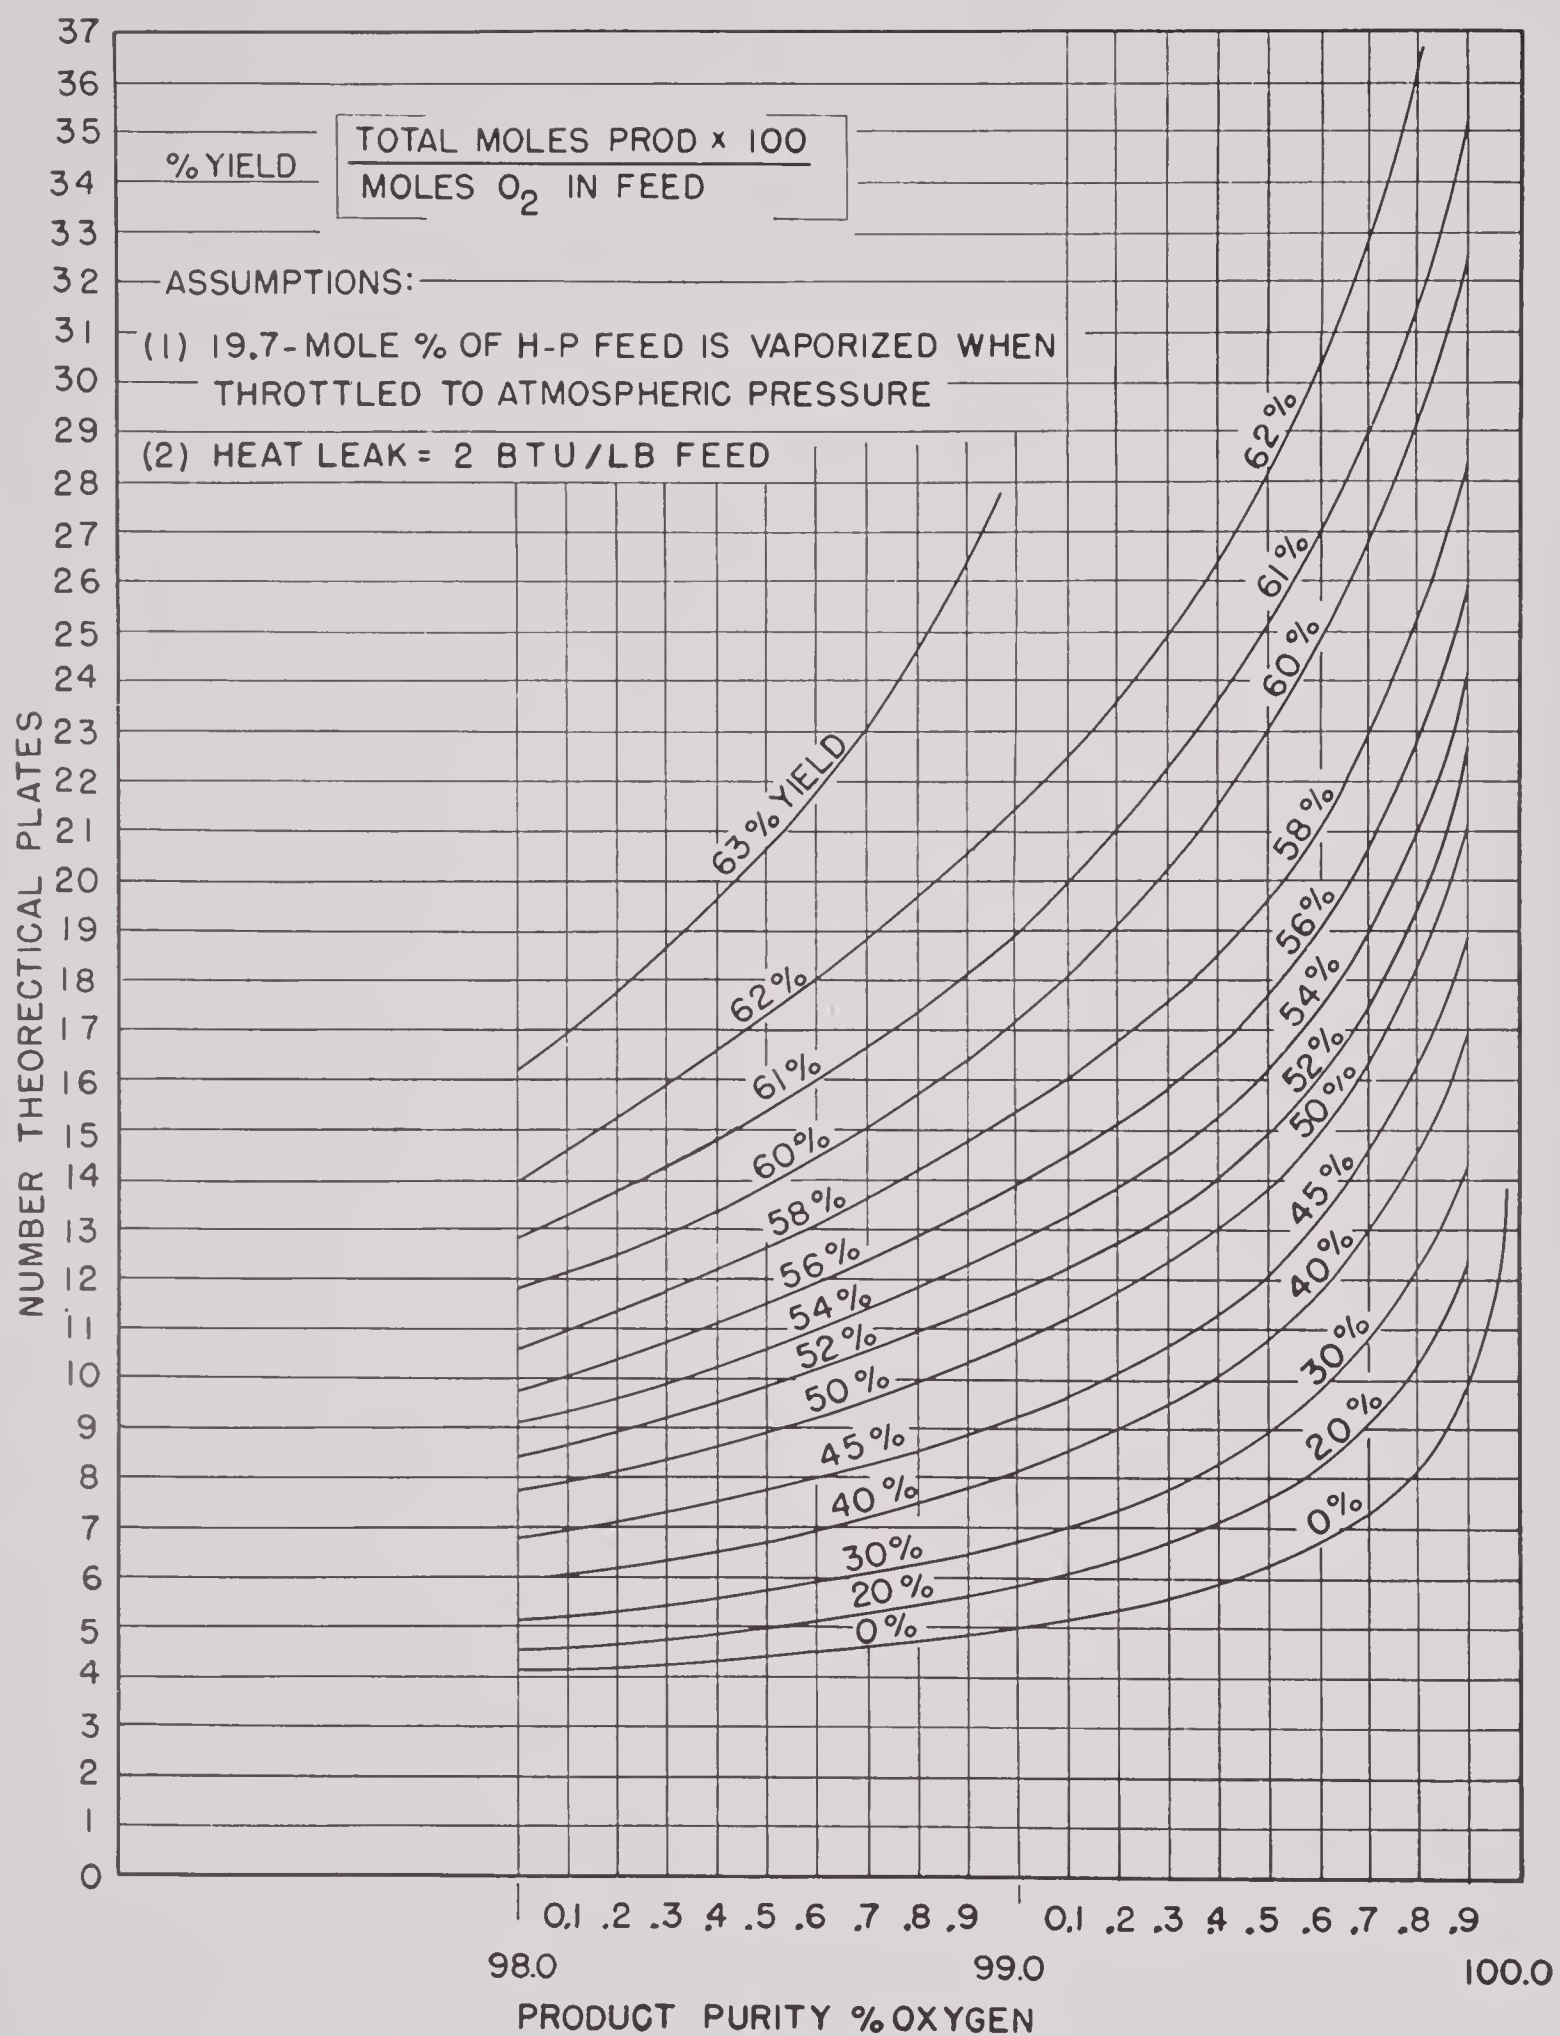 37
36
35
34
33
32
31
30
29
28
27
26
25
24
23
22
21
20
19
18
17
16
15
14
13
12
11
10
9
8
7
6
5
4
3
2
1
0
NUMBER THEORECTICAL PLATES
% YIELD
TOTAL MOLES PROD x 100
MOLES O2 IN FEED
ASSUMPTIONS:
(1) 19.7-MOLE % OF H-P FEED IS VAPORIZED WHEN
THROTTLED TO ATMOSPHERIC PRESSURE
(2) HEAT LEAK = 2 BTU/LB FEED
63% YIELD
62%
61%
60%
58%
56%
54%
52%
50%
45%
40%
30%
20%
0%
62%
61%
60%
58%
56%
54%
52%
50%
45%
40%
30%
20%
0%
0.1 .2 .3 .4 .5 .6 .7 .8 .9 0.1 .2 .3 .4 .5 .6 .7 .8 .9
98.0 99.0 100.0
PRODUCT PURITY % OXYGEN